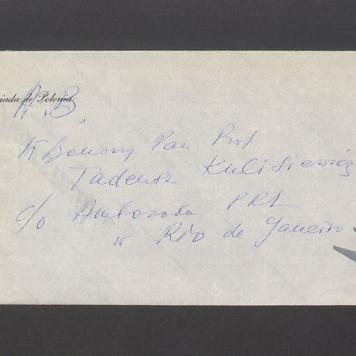 iada de Polonia
A.B.
Szanowny Pan Prof
Tadeusz Kulisiewicz
c/o Ambasada PRL
w Rio de Janeiro